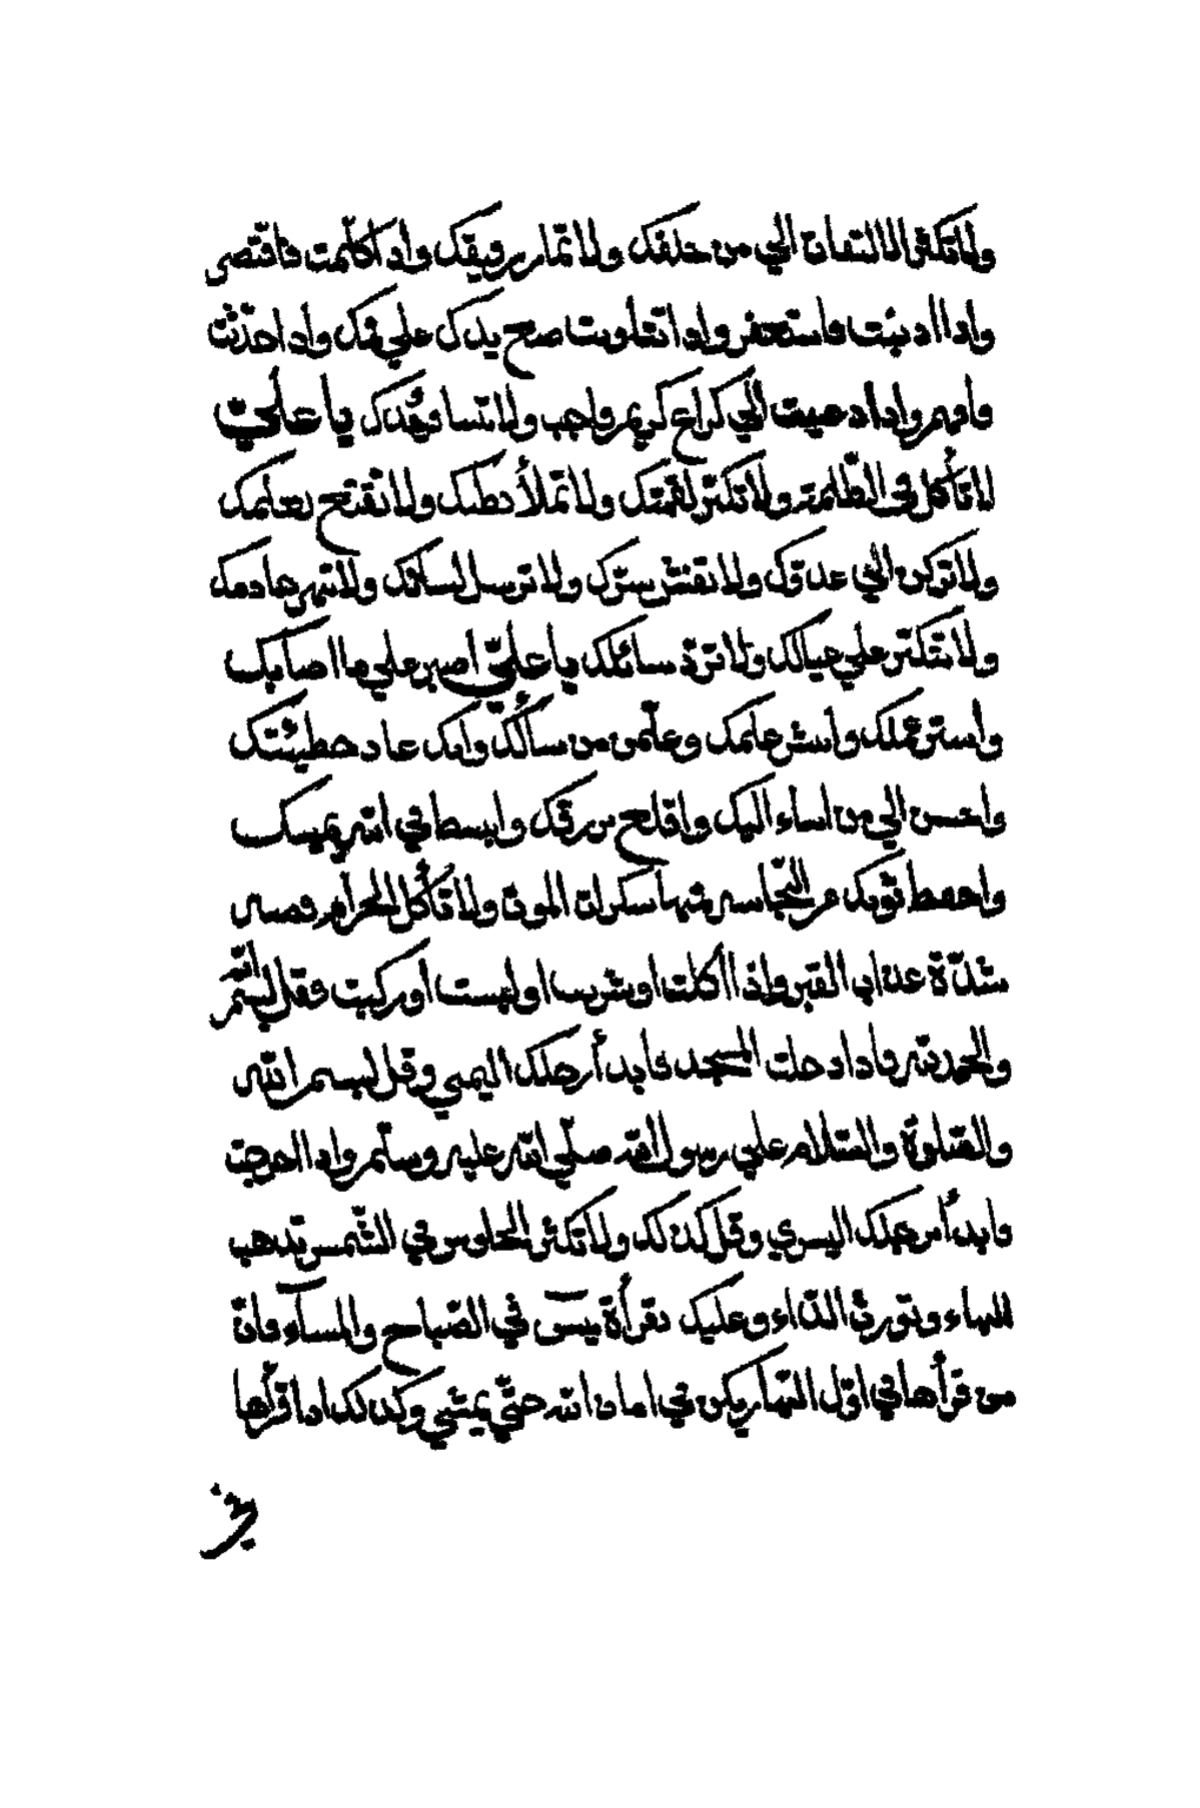 ولا تكثر الالتفات الي من خلفك ولا تمار رفيقك واذا كلمت فاقتصر
واذا اذنبت فاستغفر واذا تثاوبت ضع يدك علي فمك واذا حدّثت
فافهم واذا دعيت الي كراع كريم فاجب ولا تنسا يا علي
لا تأكل في الظلمة ولا تكثر لقمتك ولا تملأ بطنك ولا
ولا تركن الي عدوّك ولا تفش سرّك ولا ترسل لسانك ولا تنهر خادمك
ولا تتكبّر علي عيالك ولا تردّ سائلك يا عليّ اصبر علي ما اصابك
وأستر عملك وانشر علمك وعلّم من سألك وابك عاد خطيئتك
واحسن الي من اساء اليك واقنع من رزقك وابسط في الله يمينك
واحفظ ثوبك من النّجاسة سكرات الموت ولا تأكل الحرام
شدّة عذاب القبر واذا اكلت او شربت او لبست أو ركبت فقل بسم الله
والحمد لله فاذا دخلت المسجد فابدأ رجلك اليمني وقل بسم الله
والصّلوة والسّلام علي رسول الله صلّي الله عليه وسلّم واذا اخرجت
فابدأ رجلك اليسري وقل كذلك ولا تكثر الجلوس في الشّمس تذهب
البهاء وتورث الدّاء وعليك بقرأة يسۤ في الصّباح والمسآء فانّ
من قرأها في اوّل النّهار يكن في امان الله حتّي يمسي وكذلك اذا قرأها